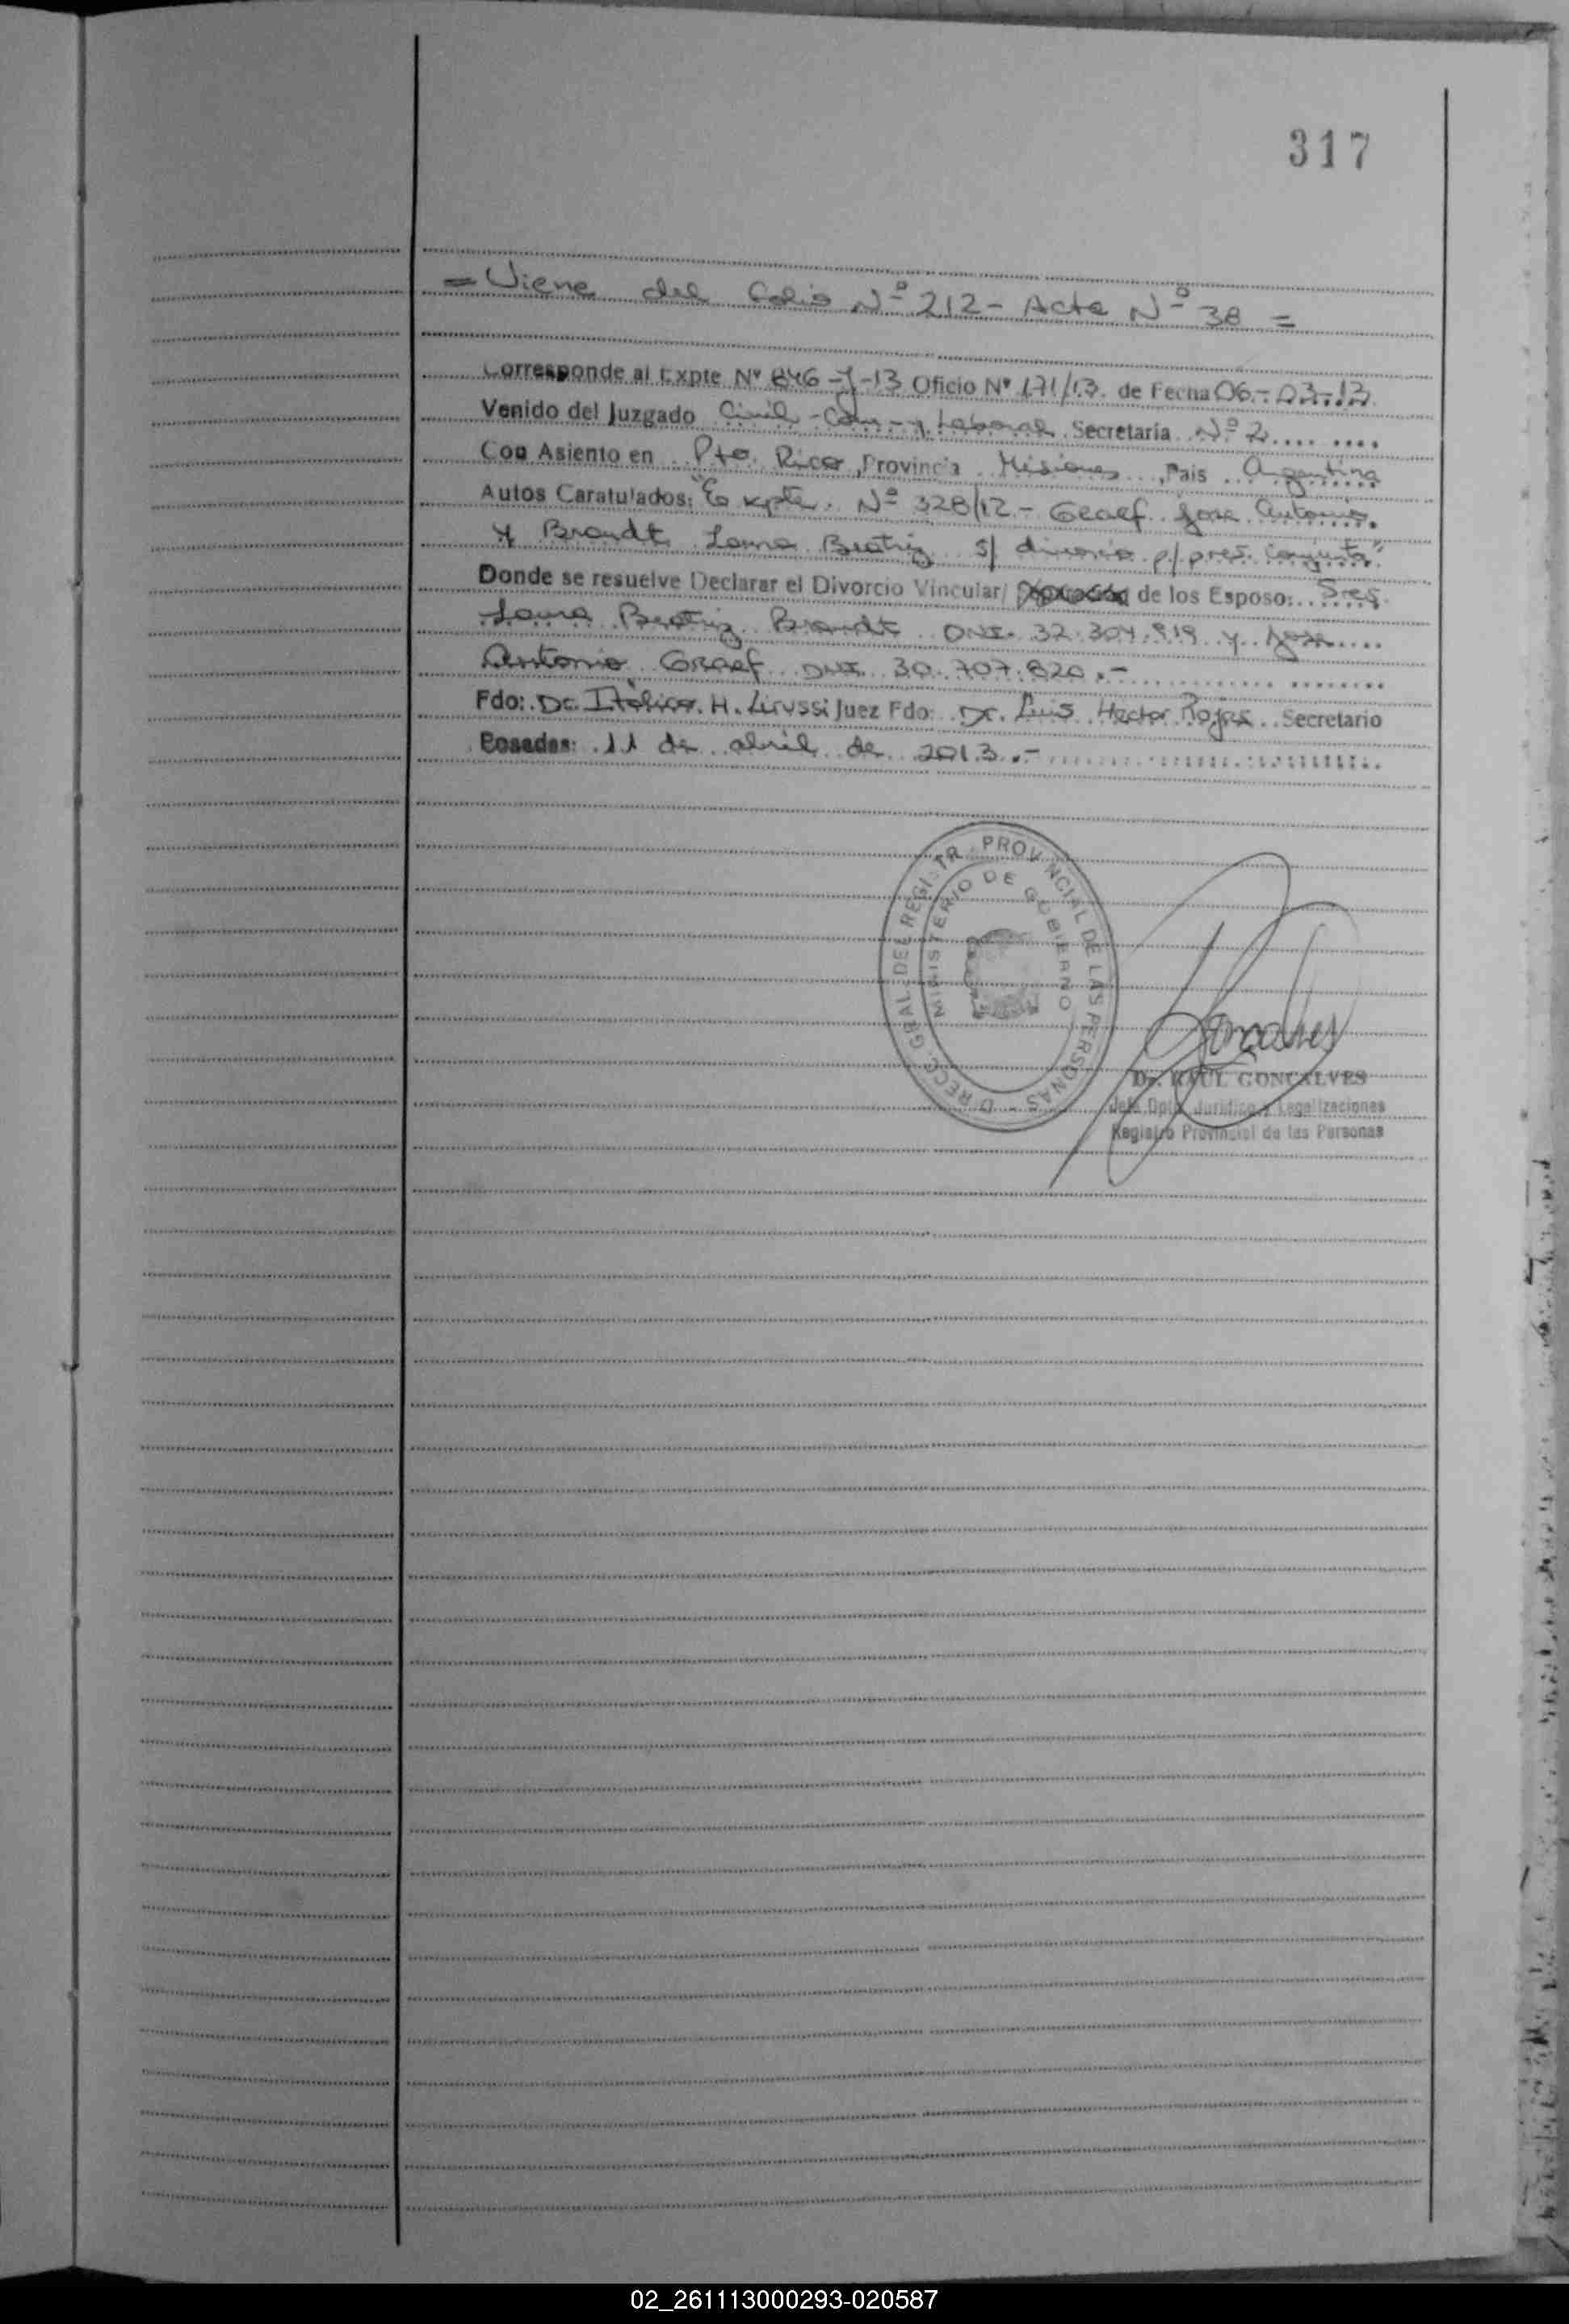 317
= Viene del Folio Nº 212 - Acta Nº 38 =
Corresponde al Expte Nº 846-J-13 Oficio Nº 171/13. de Fecha 06-03-13
Venido del Juzgado Civil - Com - y Laboral Secretaría Nº 2
Con Asiento en Pto. Rico, Provincia Misiones, Pais Argentina
Autos Caratulados: "Expte. Nº 328/12 - Graef Jose Antonio
y Brandt Lorna Beatriz s/ divorcio p/ pres. conjunta"
Donde se resuelve Declarar el Divorcio Vincular/ de los Esposo: Sres.
Lorna Beatriz Brandt DNI. 32.304.919 y Jose
Antonio Graef DNI 30.707.820.-
Fdo: Dr. Italico. H. Lirussi Juez Fdo: Dr. Luis Hector Rojas Secretario
Posadas: 11 de abril de 2013.-
DIRECC. GRAL. DEL REGISTR. PROVINCIAL DE LAS PERSONAS -
MINISTERIO DE GOBIERNO
Dr. RAUL GONCALVES
Jefe Dpto. Jurídico y Legalizaciones
Registro Provincial de las Personas
02_261113000293-020587